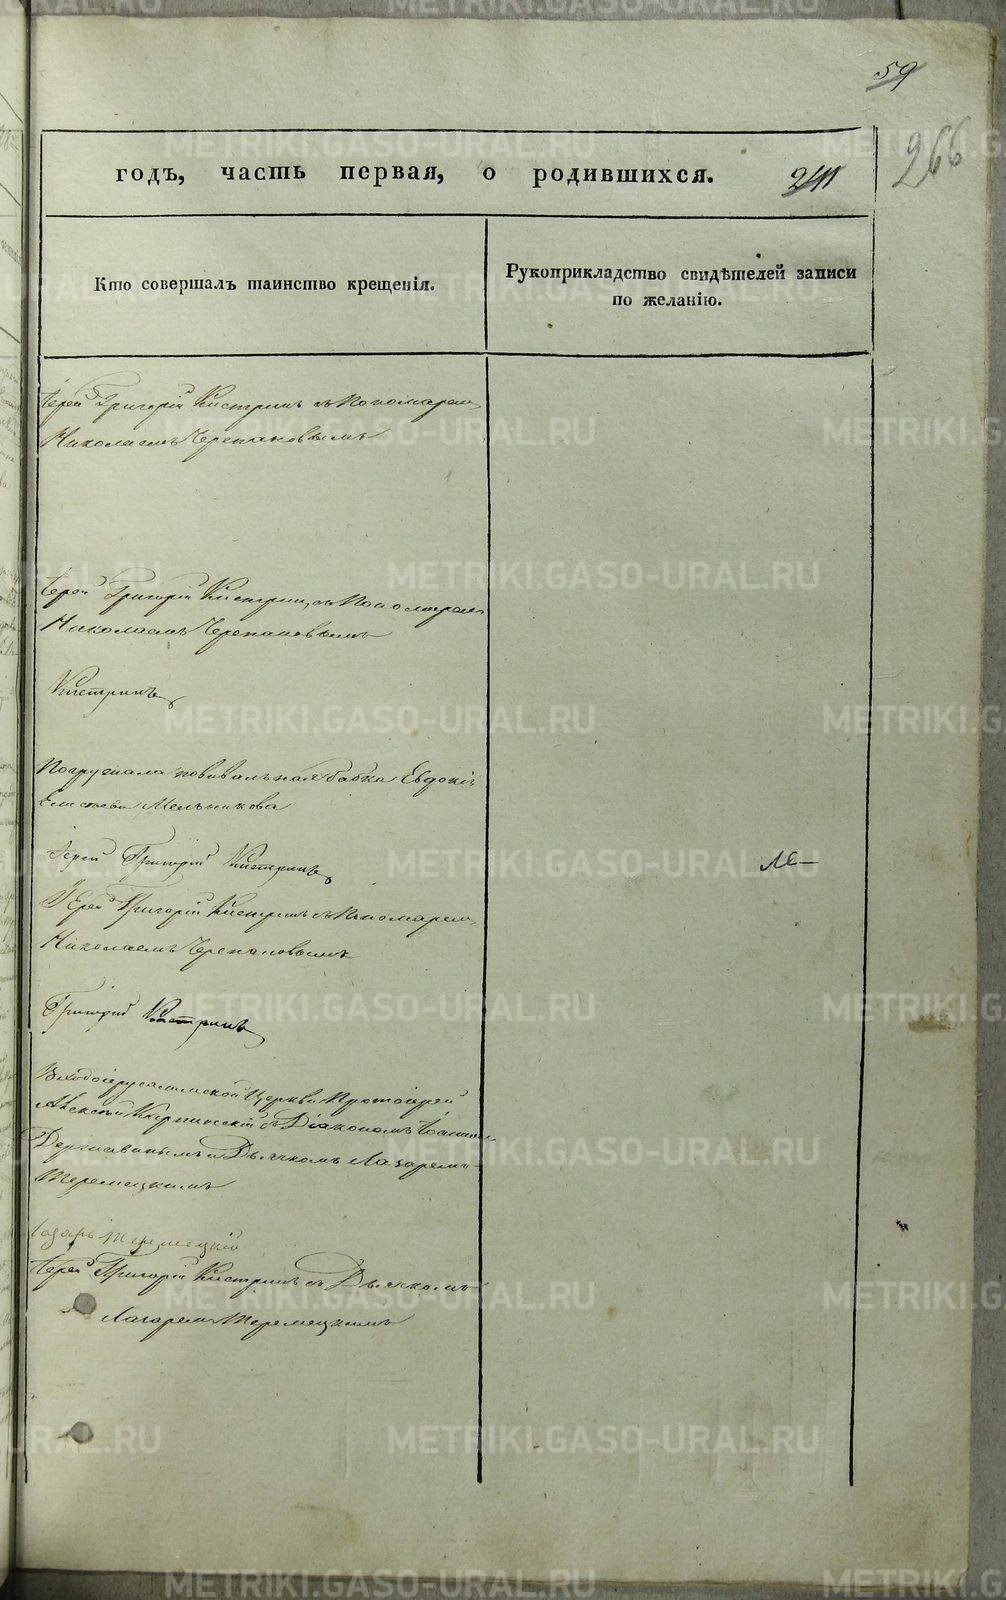 59
266
годъ, часть первая, о родившихся. 241
Кто совершалъ таинство крещенія.
Рукоприкладство свидѣтелей записи
по желанію.
Іерей Григорій Кистринъ съ Пономаремъ
Николаемъ Черепановымъ
Іерей Григорій Кистринъ съ Пономаремъ
Николаемъ Черепановымъ
Кистринъ
Погружала повивальная бабка Евдокія
Мельникова
Іерей Григорій Кистринъ
Іерей Григорій Кистринъ съ Пономаремъ
Николаемъ Черепановымъ
Григорій Кистринъ
Входоіерусалимской Церкви Протоіерей
Алексѣй съ Діакономъ Іоанномъ
Державинымъ и Дьячкомъ Лазаремъ
Теремецкимъ
Лазарь Теремецкій
Іерей Григорій Кистринъ съ Дьячкомъ
Лазаремъ Теремецкимъ
METRIKI.GASO-URAL.RU